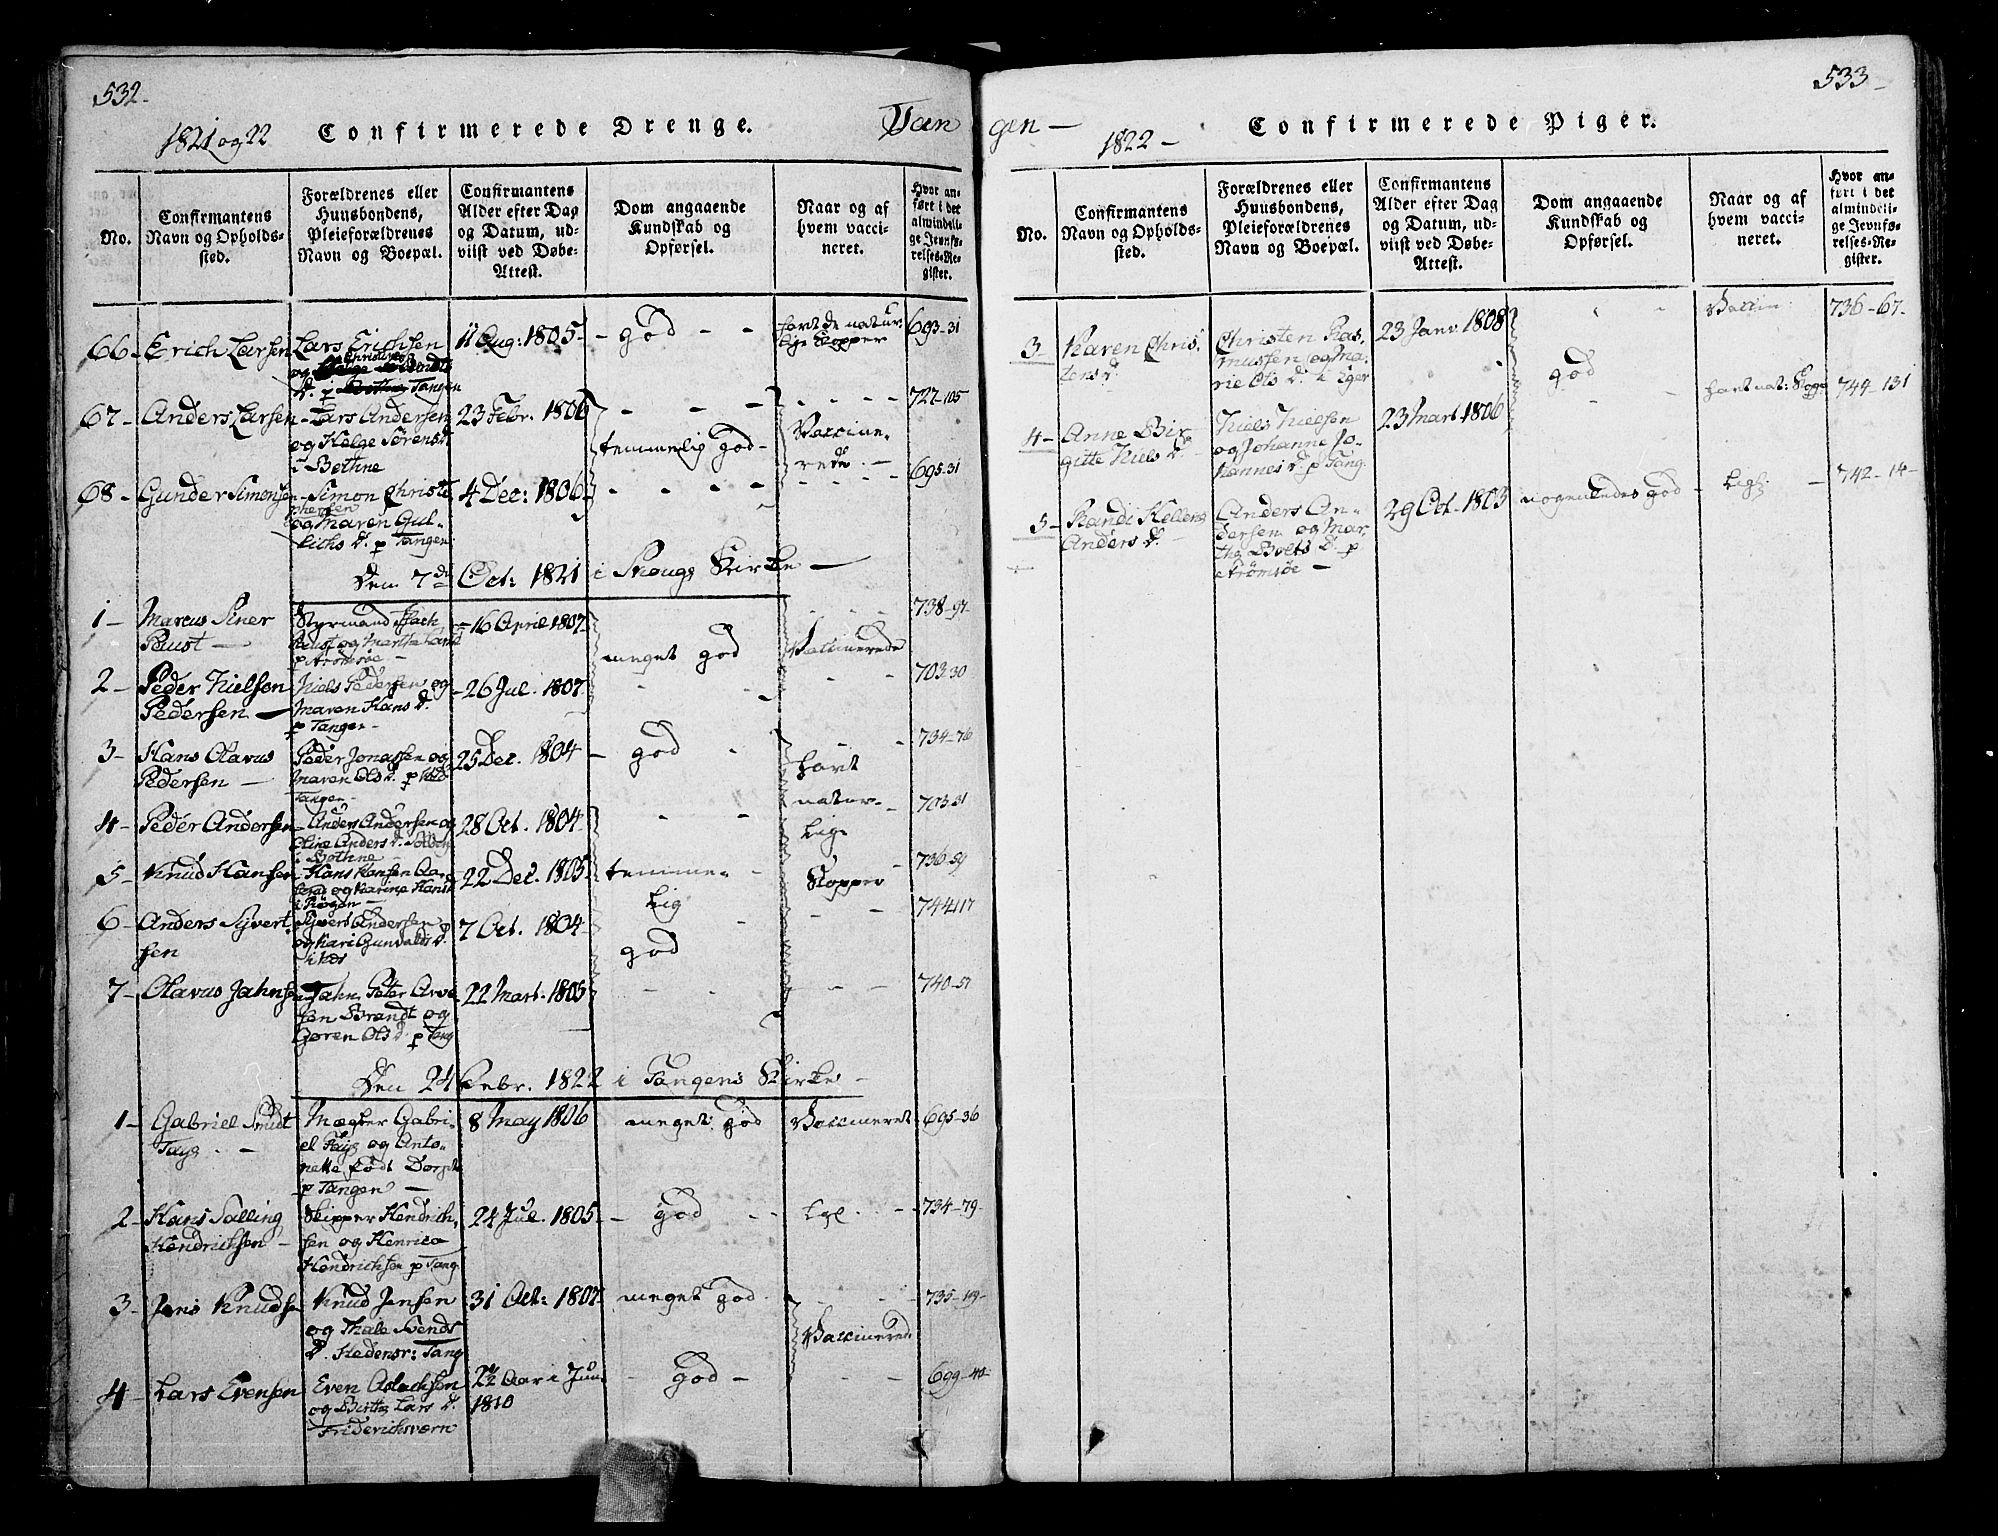 532-
1821 og 22 Confirmerede Drenge. Tan
No.
Confirmantens
Navn og Opholds-
sted.
Forældrenes eller
Huusbondens,
Pleieforældrenes
Navn og Boepæl.
Confirmantens
Alder efter Dag
og Datum, ud-
viist ved Døbe-
Attest.
Dom angaaende
Kundskab og
Opførsel.
Naar og af
hvem vacci-
neret.
Hvor an-
ført i det
almindeli-
ge Jevnfø-
relses-Re-
gister.
66- Erich Larsen
Lars Erichsen
og
D. p Tangen
11 Aug: 1805-
- god - -
havt de natur-
lige Kopper
693-31
67- Anders Larsen
Lars Andersen
og Helge Sørens D
i Bothne
23 Febr. 1806
temmelig god-
Vaccine-
rede.-
727-105
68- Gunder Simonsen
Simon Christo
phersen
og Maren Gul-
lichs D. p Tangen
4 Dec: 1806
695-31
Den 7de Oct: 1821 i Skougs Kirke-
1- Marcus Riner
Puust -
Styrmand
Puust og Marthe
p Strømsøe -
-16 April 1807
meget god
Vaccinerede
738-97
2- Peder Nielsen
Pedersen -
Niels Pedersen og
Maren Hans D.
p Tangen -
-26 Jul. 1807
703-30
3- Hans Olavus
Pedersen -
Peder Jonassen og
Maren Ols D. p
Tangen -
25 Dec. 1804
- god -
havt
natur-
lige
Kopper
734-76
4- Peder Andersen
Anders Andersen og
Anders D.
i Bothne
28 Oct. 1804-
703-31
5- Knud Hansen
Hans Hansen
og Karine Hans D
i Røgen -
22 Dec. 1805
temme-
lig
god
736-59
6- Anders Syvert
sen
Syvert Andersen
og Kari Gunvalds D.
7 Oct. 1804-
744-117
7- Olavus Jahnsen
Jahn Peter
sen Brandt og
Gøren Ols D. p Tang
22 Mart. 1805
740-57
Den 24 Febr. 1822 i Tangens Kirke -
1- Gabriel Smidt
Tays. -
Mægler Gabri-
el Tays og Anto-
nette født
p Tangen -
8 May 1806
meget god
Vaccineret
695-36
2- Hans Salling
Hendrichsen -
Skipper Hendrich-
sen og Henrica
Hendrichsen p Tang
24 Jul. 1805-
- god - -
Lgl. -
734-79-
3- Jens Knudsen
Knud Jensen
og Thale Svends
D. Tang
31 Oct: 1807
meget god.
Vaccinerede
735-
4- Lars Evensen
Even Aslachsen
og Birthe Lars D.
Friderichsværn
22 Aar i Juni
1810
- god -
699-40-
533-
gen- 1822- Confirmerede Piger.
No.
Confirmantens
Navn og Opholds-
sted.
Forældrenes eller
Huusbondens,
Pleieforældrenes
Navn og Boepæl.
Confirmantens
Alder efter Dag
og Datum, ud-
viist ved Døbe-
Attest.
Dom angaaende
Kundskab og
Opførsel.
Naar og af
hvem vacci-
neret.
Hvor an-
ført i det
almindeli-
ge Jevnfø-
relses-Re-
gister.
3- Karen Chris-
tens D.
Christen Ras-
mussen og Ma-
rie Ols D. i Eger
23 Janv. 1808
god
Vaccin:
736-67-
4- Anne Bir-
gitte Niels D.
Niels Nielsen
og Johanne Jo-
hannes D. p Tang.
23 Mart. 1806
havt nat: Kopp
744-131
5- Randi Hellene
Anders D. -
Anders An-
dersen og Mar-
the D. p
Strømsøe -
29 Oct. 1803
nogenledes god
Ligl: -
742-14-